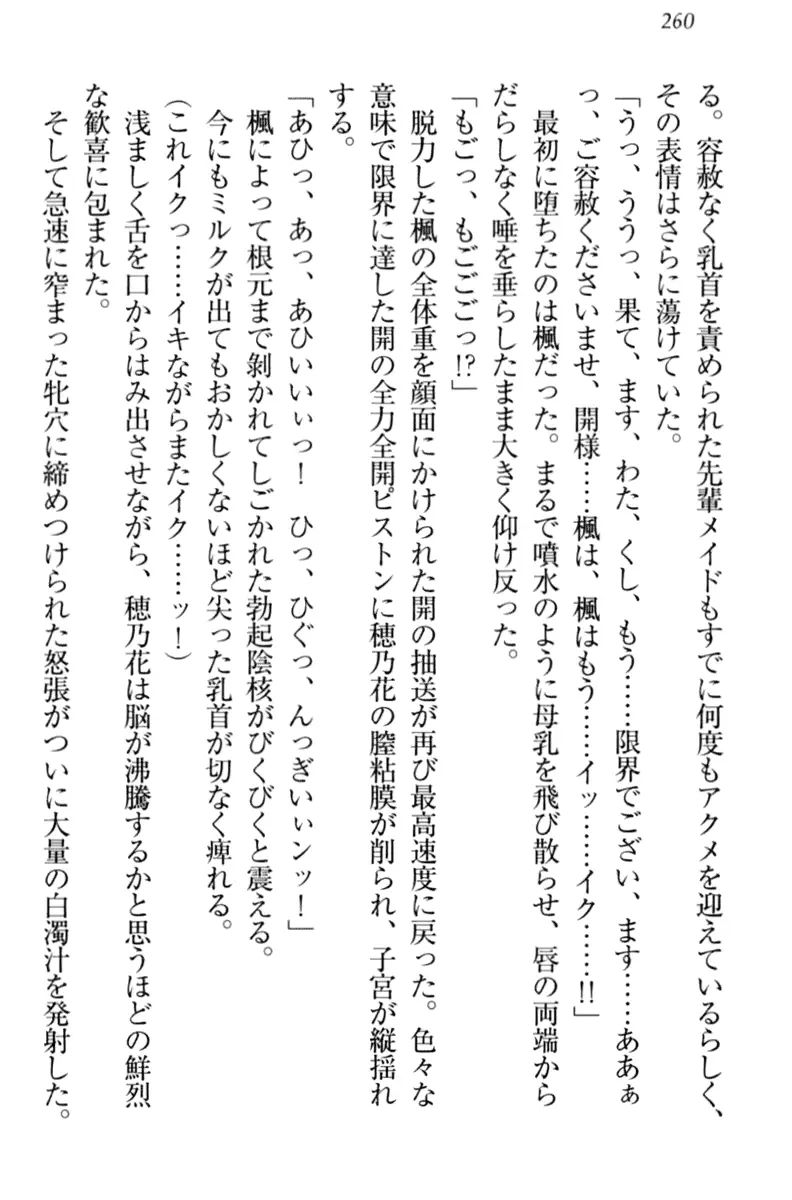 260
る。容赦なく乳首を責められた先輩メイドもすでに何度もアクメを迎えているらしく、
その表情はさらに蕩けていた。
「うっ、ううっ、果て、ます、わた、くし、もう……限界でござい、ます……ああぁ
っ、ご容赦くださいませ、開様……楓は、楓はもう……イッ……イク……!!」
最初に堕ちたのは楓だった。まるで噴水のように母乳を飛び散らせ、唇の両端から
だらしなく唾を垂らしたまま大きく仰け反った。
「もごっ、もごごごっ!?」
脱力した楓の全体重を顔面にかけられた開の抽送が再び最高速度に戻った。色々な
意味で限界に達した開の全力全開ピストンに穂乃花の膣粘膜が削られ、子宮が縦揺れ
する。
「あひっ、あっ、あひいいぃっ！　ひっ、ひぐっ、んっぎいぃンッ！」
楓によって根元まで剝かれてしごかれた勃起陰核がびくびくと震える。
今にもミルクが出てもおかしくないほど尖った乳首が切なく痺れる。
（これイクっ……イキながらまたイク……ッ！）
浅ましく舌を口からはみ出させながら、穂乃花は脳が沸騰するかと思うほどの鮮烈
な歓喜に包まれた。
そして急速に窄まった牝穴に締めつけられた怒張がついに大量の白濁汁を発射した。